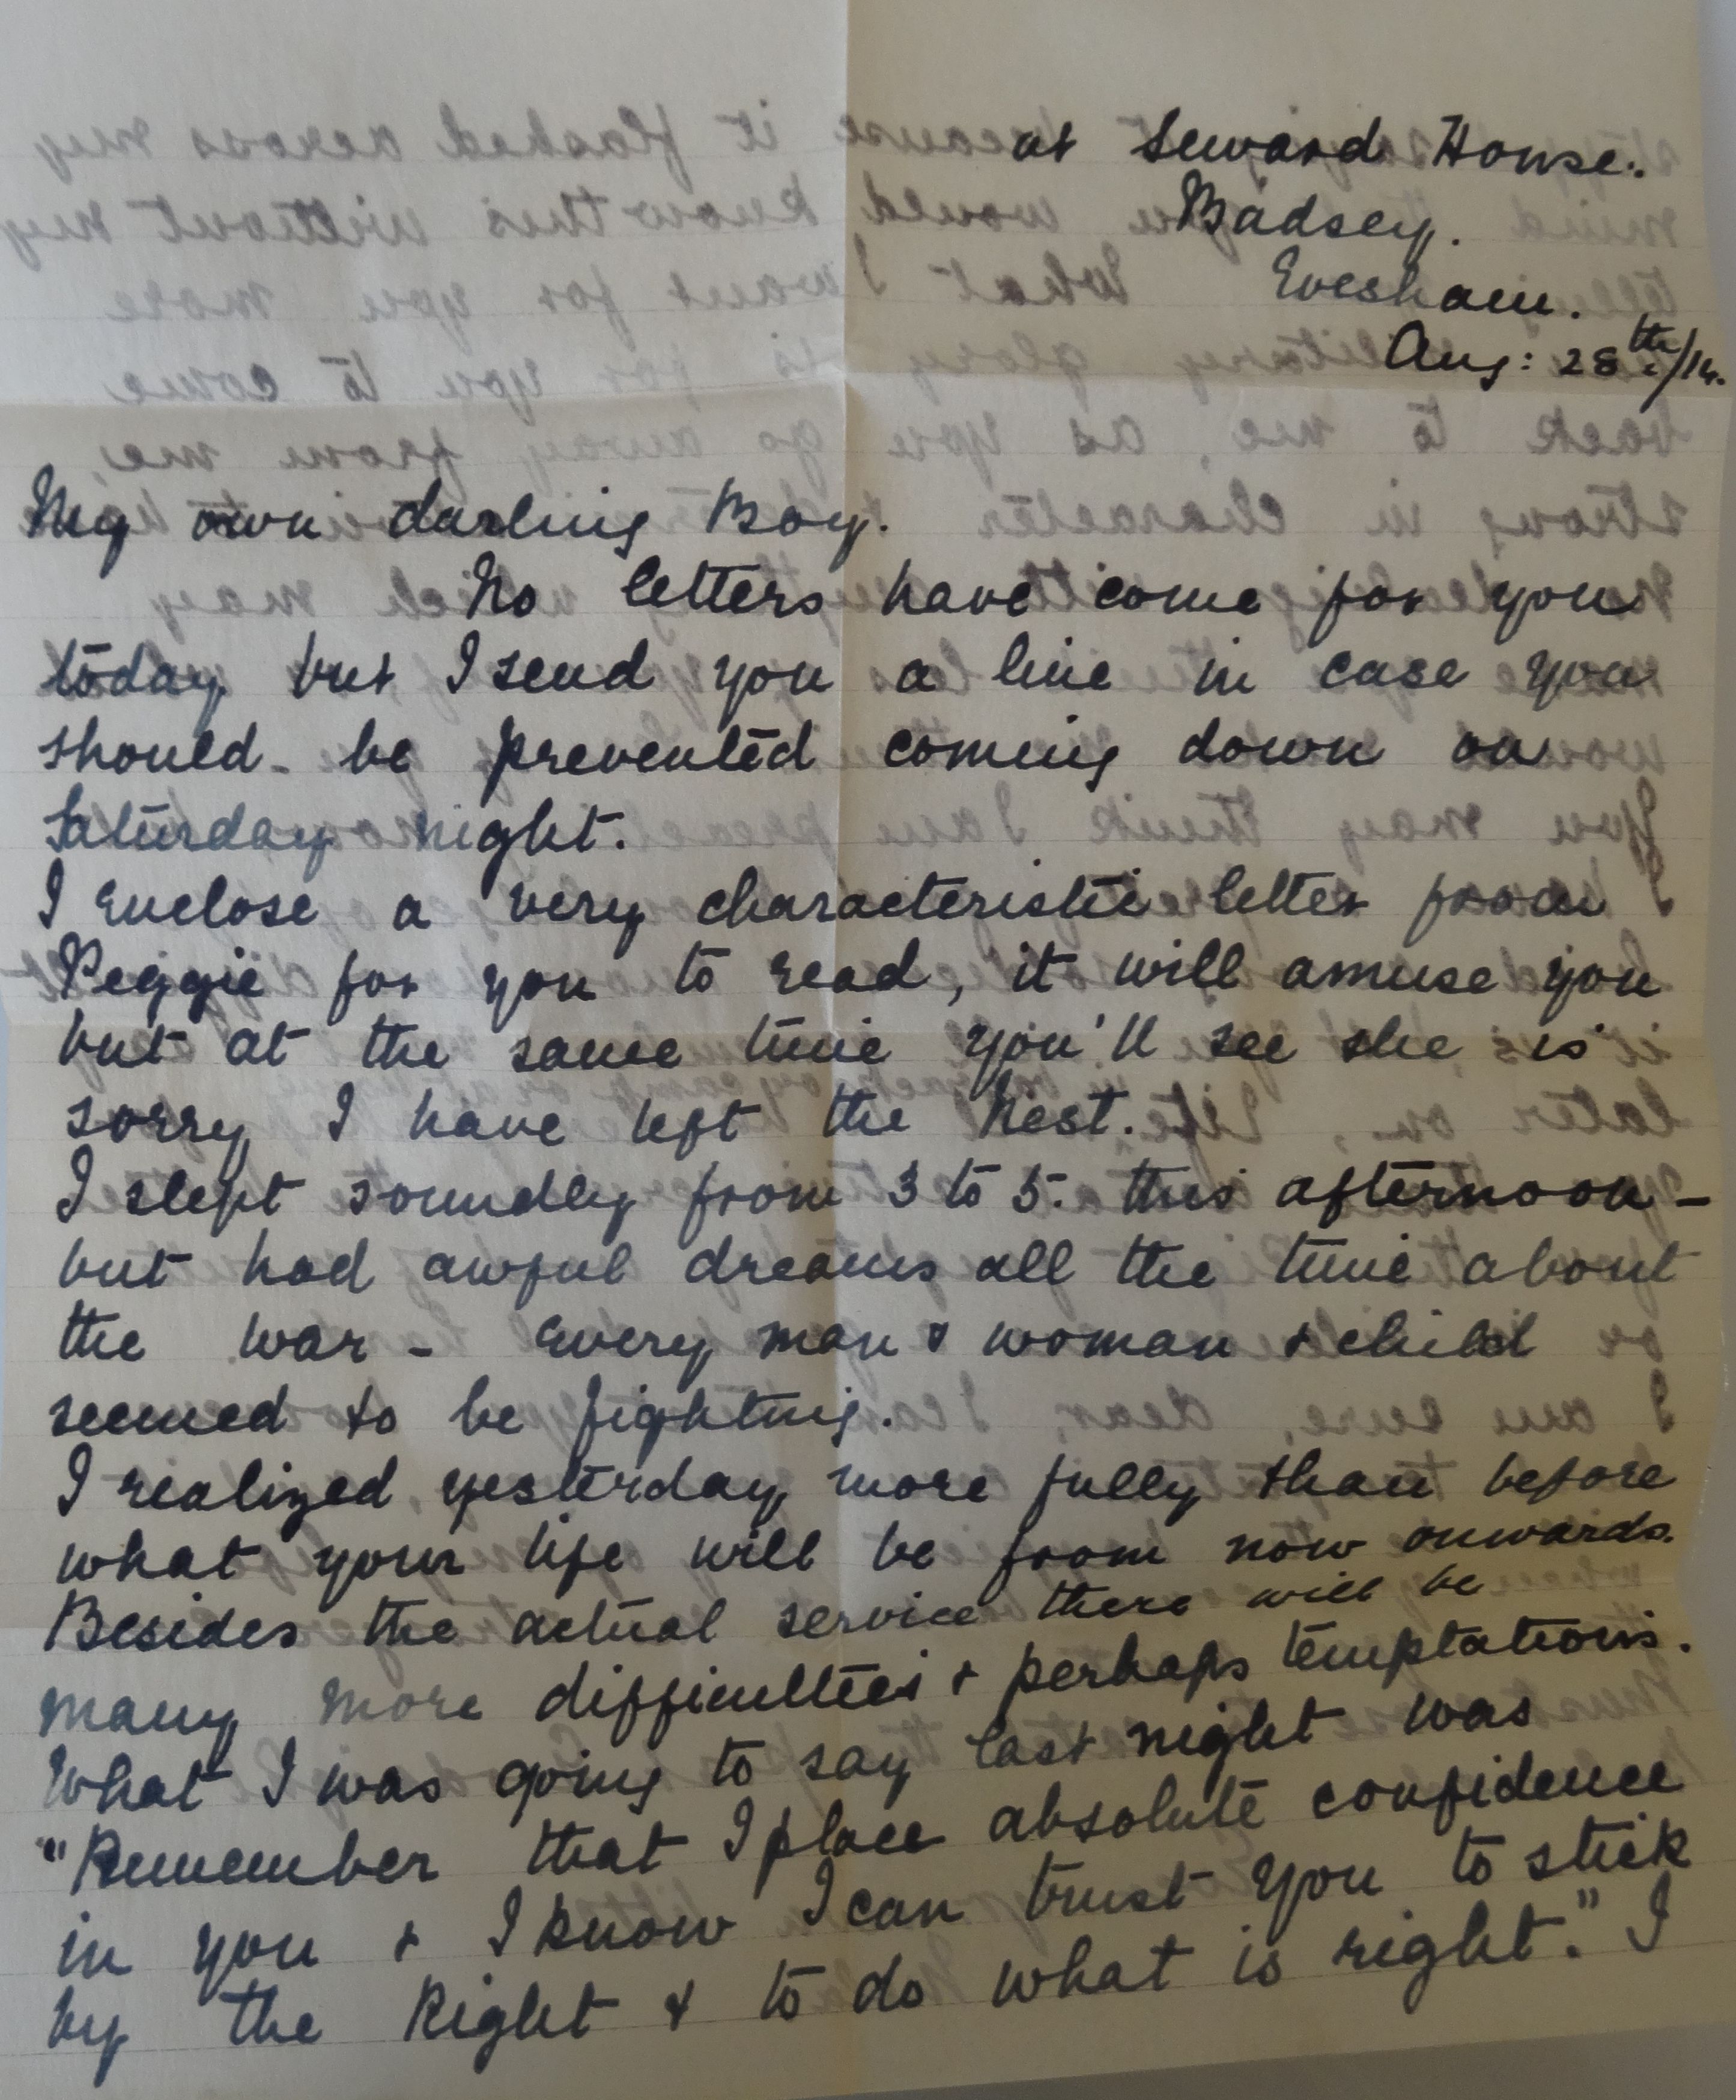 at Seward House.
Badsey.
Evesham.
Aug: 28th/14.
My own darling Boy.
No letters have come for you
today but I send you a line in case you
should be prevented coming down on
Saturday night.
I enclose a very characteristic letter from
Peggie for you to read, it will amuse you
but at the same time you'll see she is
sorry I have left the Nest.
I slept soundly from 3 to 5. this afternoon -
but had awful dreams all the time about
the war - Every man & woman & child
seemed to be fighting.
I realized yesterday more fully than before
what your life will be from now onwards.
Besides the actual service there will be
many more difficulties & perhaps temptations.
What I was going to say last night was
"Remember that I place absolute confidence
in you & I know I can trust you to stick
by the Right & to do what is right." I